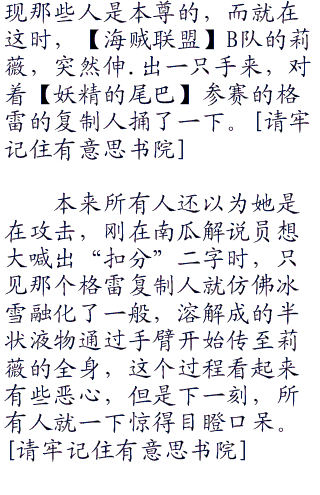 现那些人是本尊的，而就在
这时，【海贼联盟】B队的莉
薇，突然伸.出一只手来，对
着【妖精的尾巴】参赛的格
雷的复制人捅了一下。[请牢
记住有意思书院]
本来所有人还以为她是
在攻击，刚在南瓜解说员想
大喊出“扣分”二字时，只
见那个格雷复制人就仿佛冰
雪融化了一般，溶解成的半
状液物通过手臂开始传至莉
薇的全身，这个过程看起来
有些恶心，但是下一刻，所
有人就一下惊得目瞪口呆。
[请牢记住有意思书院]